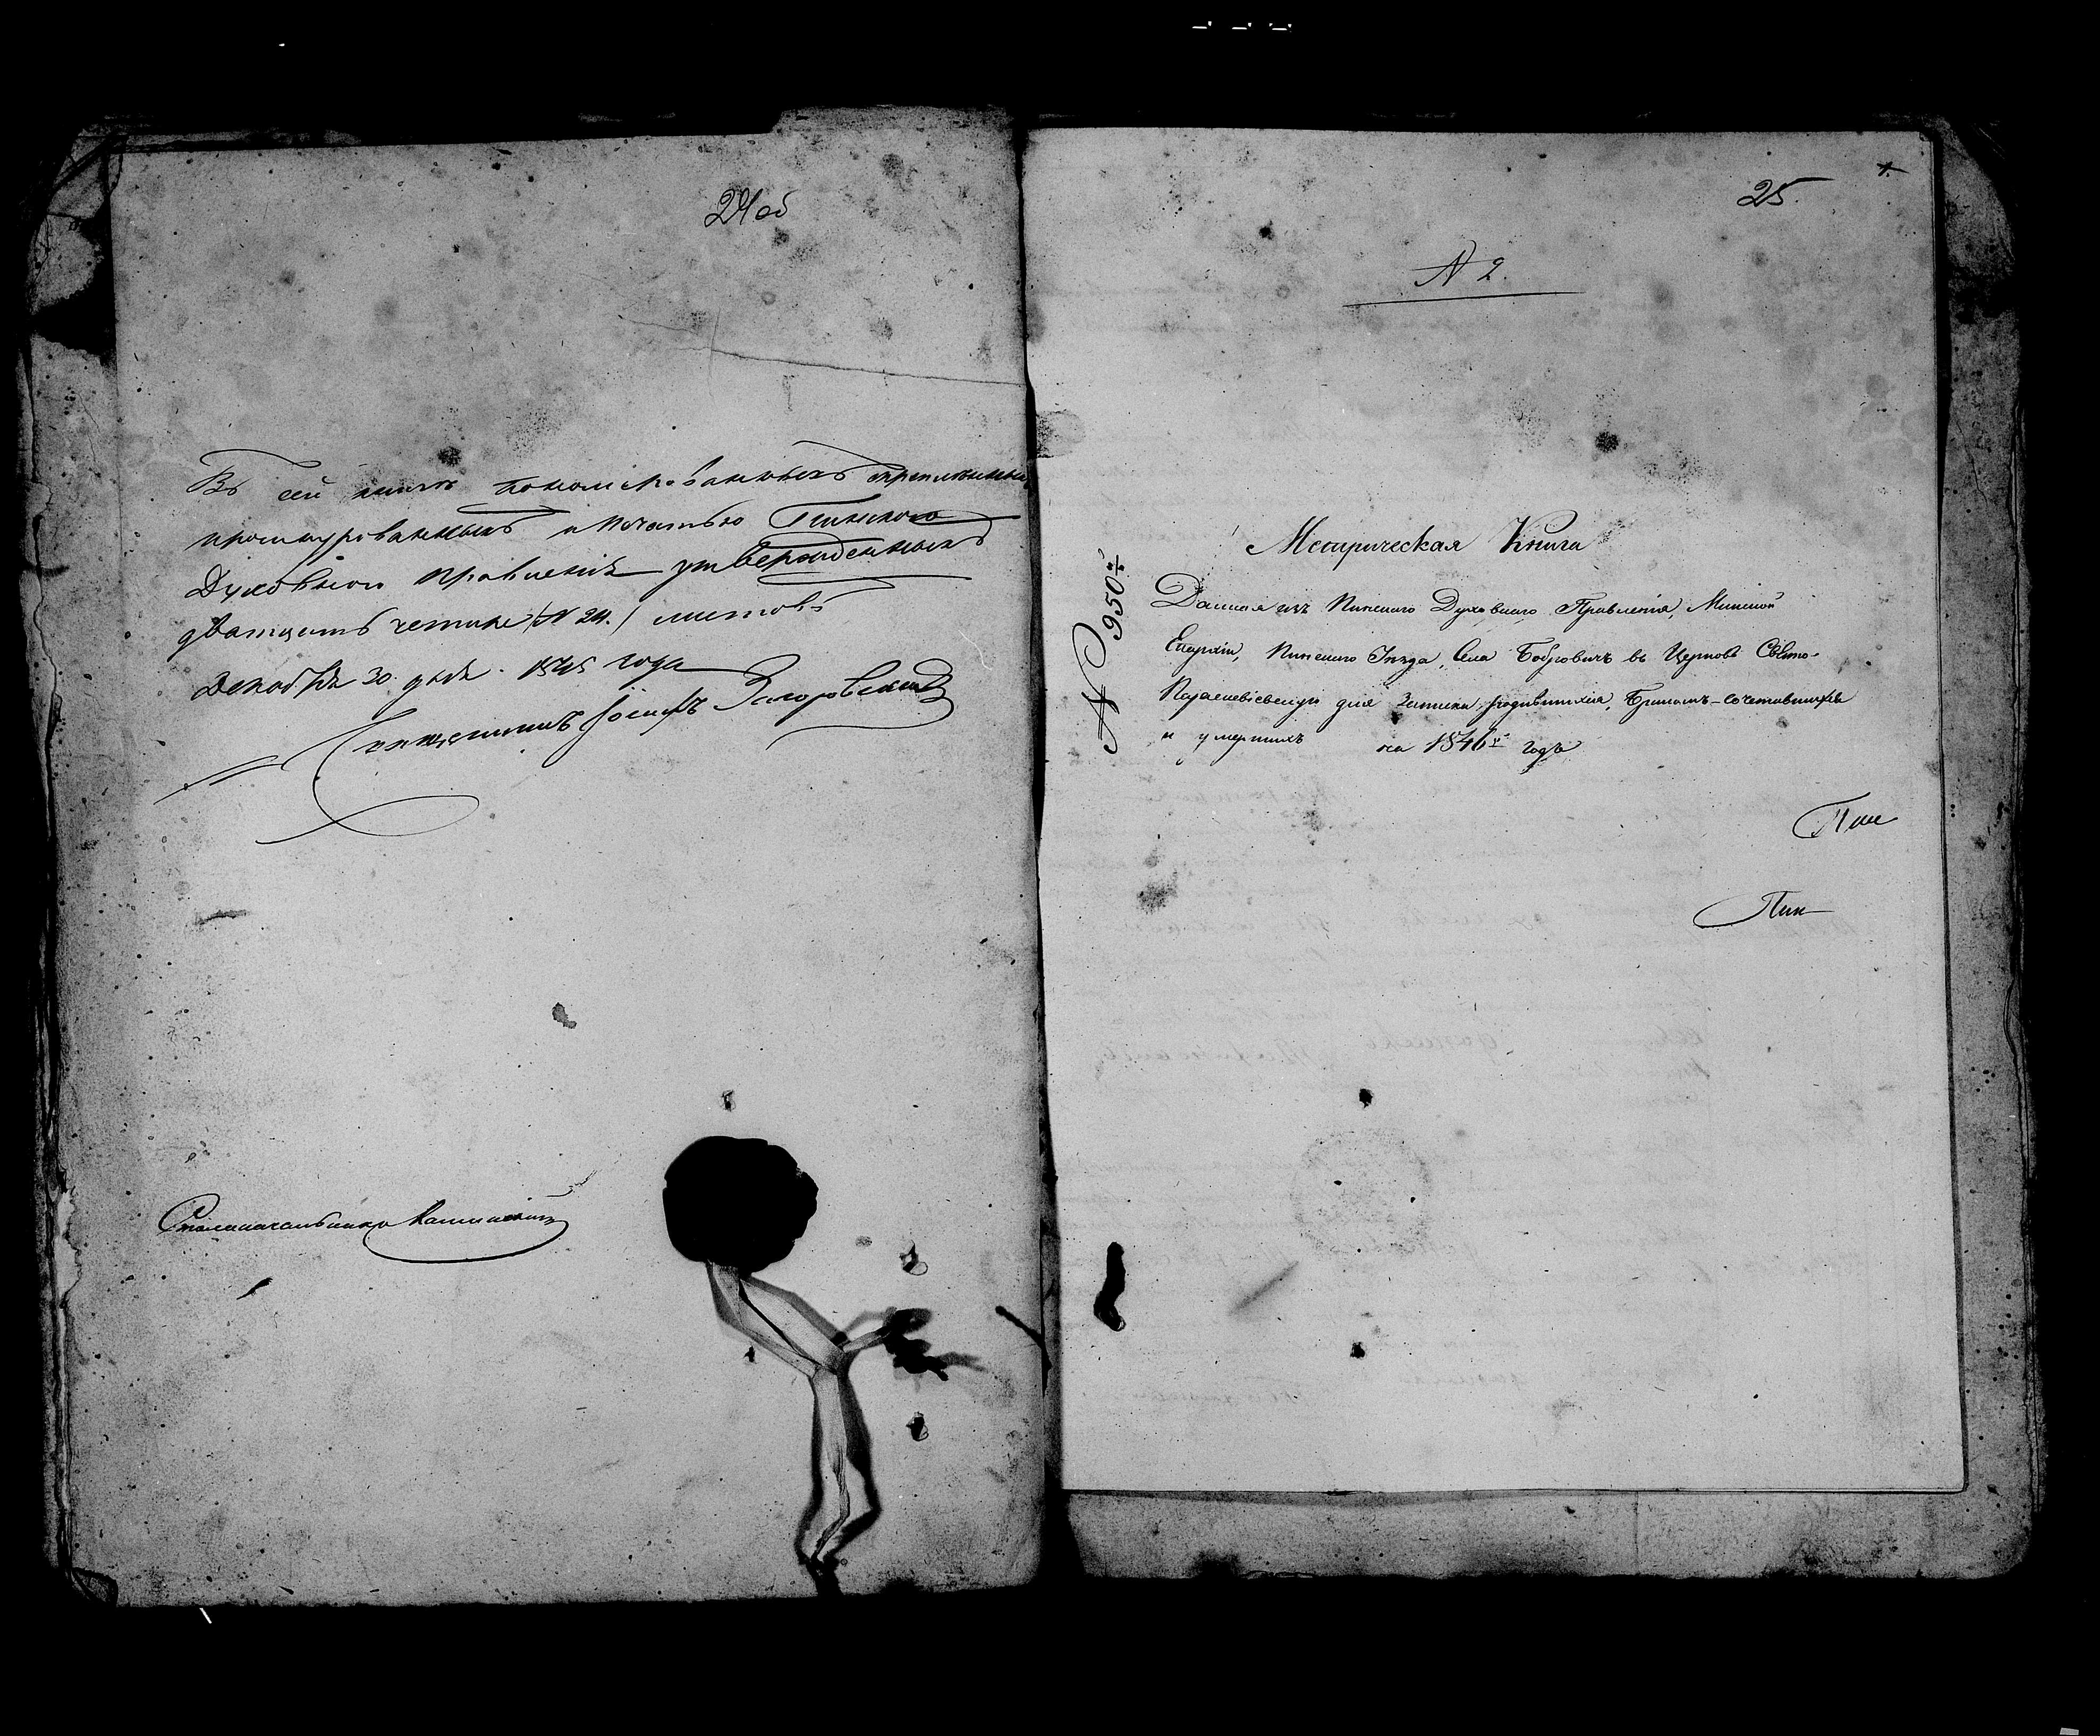 24 об
Въ сей книгѣ пономерованныхъ скрепленныхъ
прошнурованныхъ и печатью Пинскаго
Духовнаго Правленія утвержденныхъ
дватцать четыре /N 24./ листовъ
Декабря 30. дня. 1845 года
Священникъ Іосифъ Загоровскій
Столоначальникъ
1.
25.
N 2.
N 950й
Метрическая Книга
Данная изъ Пинскаго Духовнаго Правленія, Минской
Епархіи, Пинскаго Уѣзда, Села Бобровичъ въ Церковь Свято-
Параскевіевскую для записки родившихся, Бракомъ-сочетавшихся
и умершихъ на 1846й годъ
Пин